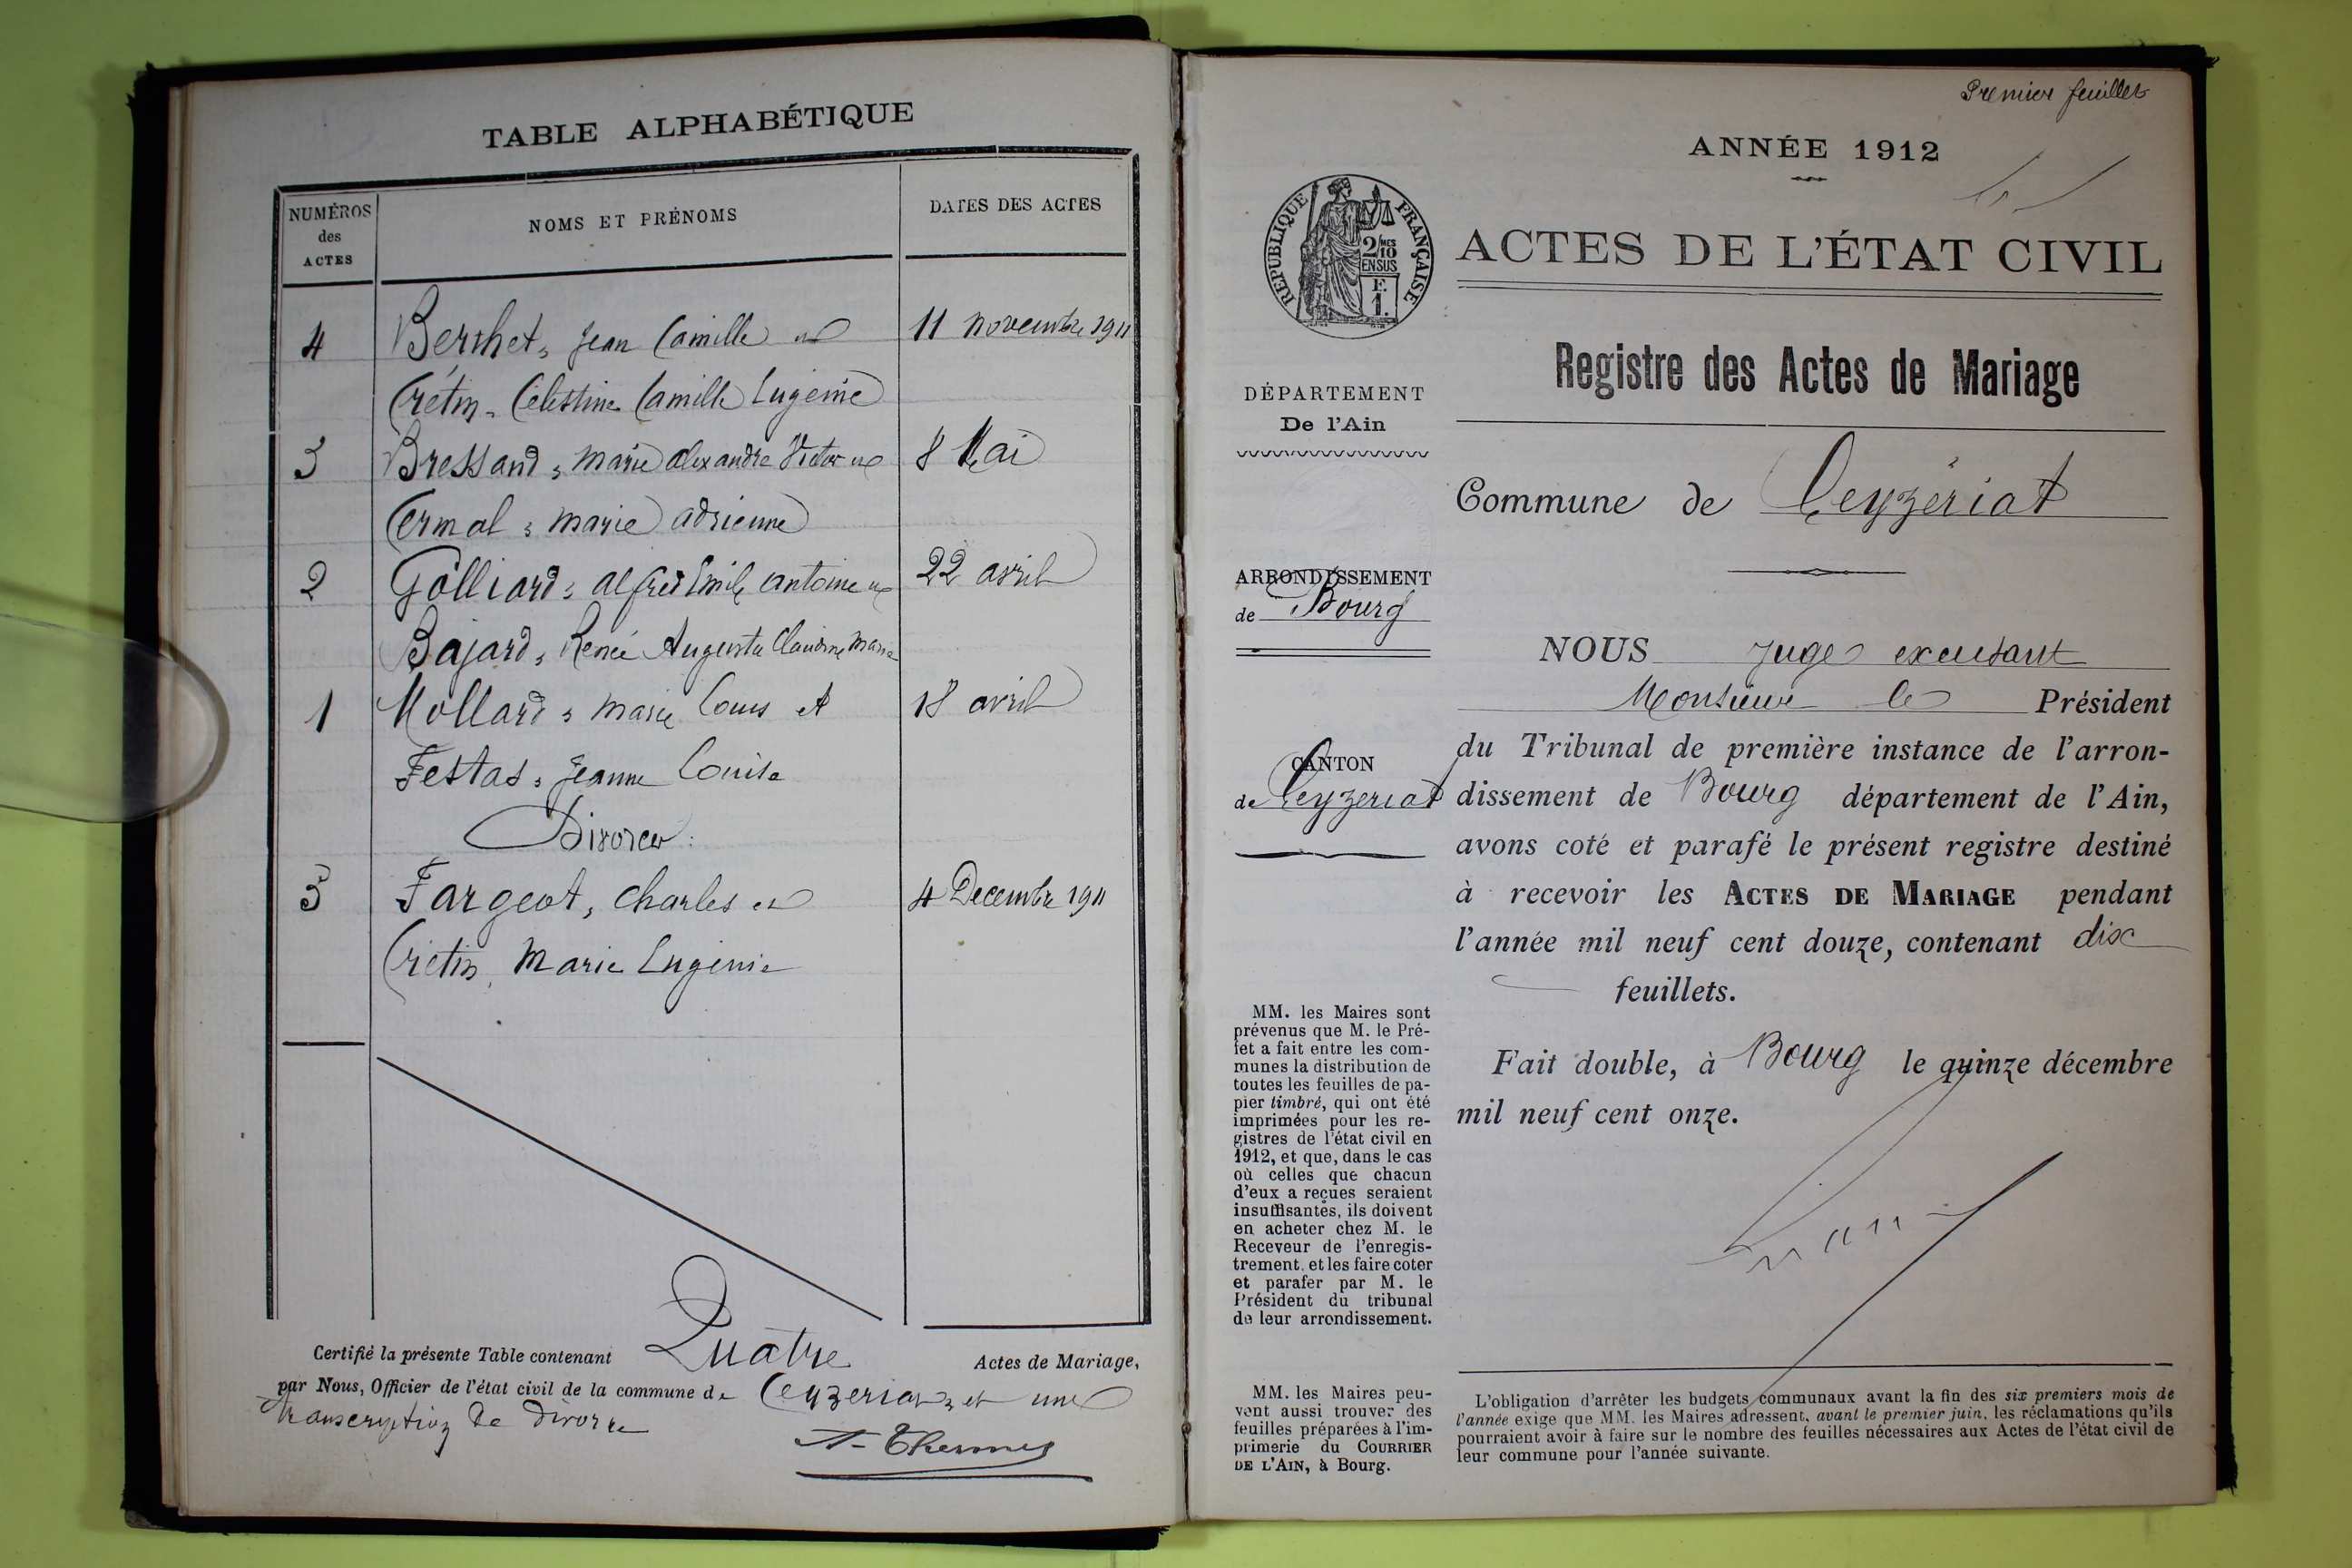 TABLE ALPHABÉTIQUE
NUMÉROS
des
ACTES
NOMS ET PRÉNOMS
DATES DES ACTES
4 Berthet, Jean Camille et 11 novembre 1911
Crétin, Célestine Camille Eugénie
3 Bressand, Marie Alexandre Victor et 8 Mai
Cermal, Marie Adrienne
2 Golliard, Alfred Emile Antoine et 22 avril
Bajard, Renée Augusta Claudine Marie
1 Mollard, Marie Louis et 18 avril
Festas, Jeanne Louise
Divorce
5 Fargeot, Charles et 4 Decembre 1911
Crétin, Marie Eugénie
Certifié la présente Table contenant Quatre Actes de Mariage,
par Nous, Officier de l'état civil de la commune de Ceyzeriat et une
transcription de divorce
Premier feuillet
ANNÉE 1912
RÉPUBLIQUE FRANÇAISE
2/10 MES
EN SUS
F.
1.
ACTES DE L'ÉTAT CIVIL
Registre des Actes de Mariage
DÉPARTEMENT
De l'Ain
Commune de Ceyzériat
ARRONDISSEMENT
de Bourg
CANTON
de Ceyzeriat
NOUS Juge
Monsieur le Président
du Tribunal de première instance de l'arron-
dissement de Bourg département de l'Ain,
avons coté et parafé le présent registre destiné
à recevoir les ACTES DE MARIAGE pendant
l'année mil neuf cent douze, contenant dix
feuillets.
Fait double, à Bourg le quinze décembre
mil neuf cent onze.
MM. les Maires sont
prévenus que M. le Pré-
fet a fait entre les com-
munes la distribution de
toutes les feuilles de pa-
pier timbré, qui ont été
imprimées pour les re-
gistres de l'état civil en
1912, et que, dans le cas
où celles que chacun
d'eux a reçues seraient
insuffisantes, ils doivent
en acheter chez M. le
Receveur de l'enregis-
trement, et les faire coter
et parafer par M. le
Président du tribunal
de leur arrondissement.
MM. les Maires peu-
vent aussi trouver des
feuilles préparées à l'im-
primerie du COURRIER
DE L'AIN, à Bourg.
L'obligation d'arrêter les budgets communaux avant la fin des six premiers mois de
l'année exige que MM. les Maires adressent, avant le premier juin, les réclamations qu'ils
pourraient avoir à faire sur le nombre des feuilles nécessaires aux Actes de l'état civil de
leur commune pour l'année suivante.